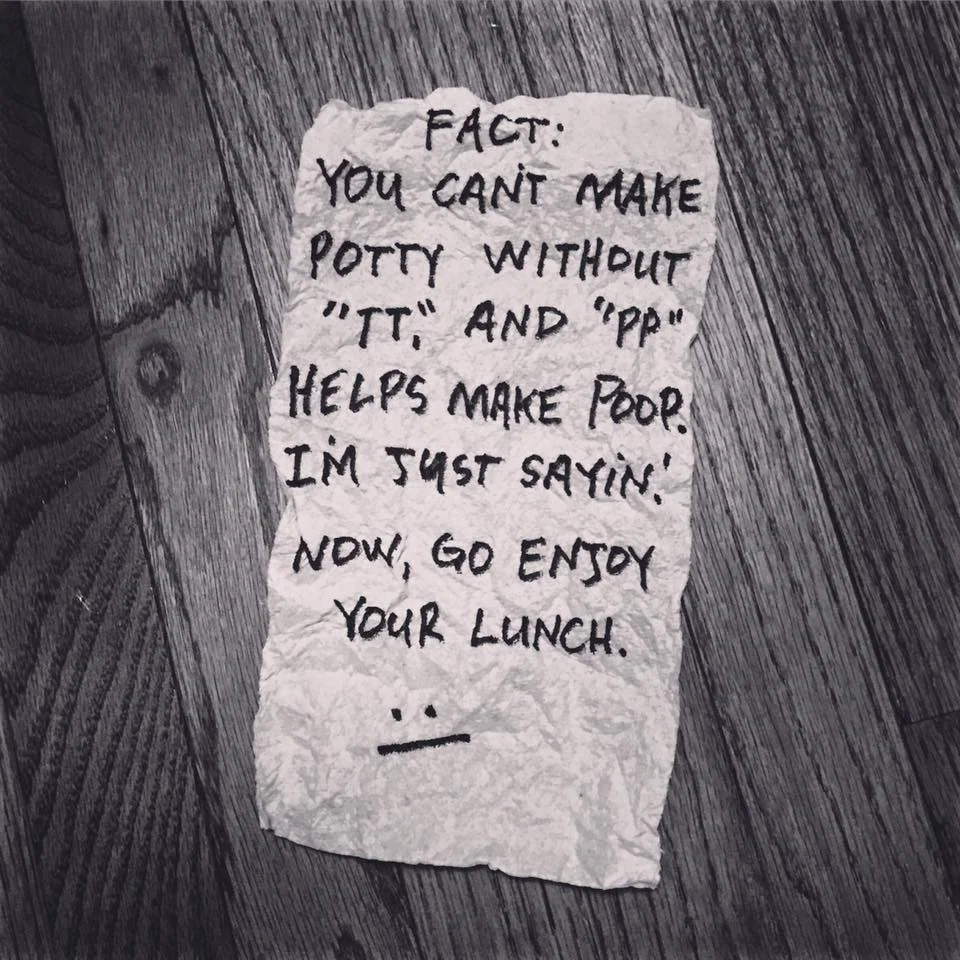 FACT:
YOU CAN'T MAKE
POTTY WITHOUT
"TT," AND "PP"
HELPS MAKE POOP.
I'M JUST SAYIN!
NOW, GO ENJOY
YOUR LUNCH.